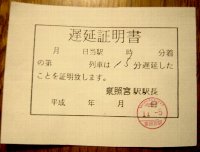 遅延証明書
月　日当駅　時　分着
の第　列車は 15 分遅延した
ことを証明致します。
東照宮駅駅長
平成　年　月　日